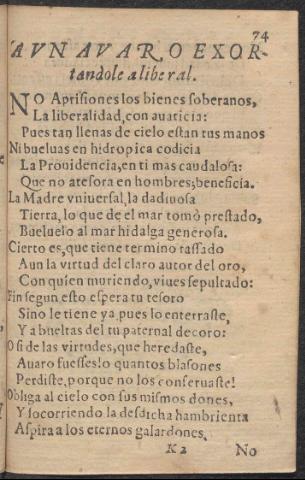 74
A VN AVARO EXOR-
tandole a liberal.
NO Aprisiones los bienes soberanos,
La liberalidad, con auaricia:
Pues tan llenas de cielo estan tus manos
Ni bueluas en hidropica codicia
La Prouidencia, en ti mas caudalosa:
Que no atesora en hombres; beneficia.
La Madre vniuersal, la dadiuosa
Tierra, lo que de el mar tomò prestado,
Bueluelo al mar hidalga generosa.
Cierto es, que tiene termino tassado
Aun la virtud del claro autor del oro,
Con quien muriendo, viues sepultado:
Fin segun esto espera tu tesoro
Sino le tiene ya, pues lo enterraste,
Y a bueltas del tu paternal decoro:
O si de las virtudes, que heredaste,
Auaro fuesses! o quantos blasones
Perdiste, porque no los conseruaste!
Obliga al cielo con sus mismos dones,
Y socorriendo la desdicha hambrienta
Aspira a los eternos galardones.
K 2 No